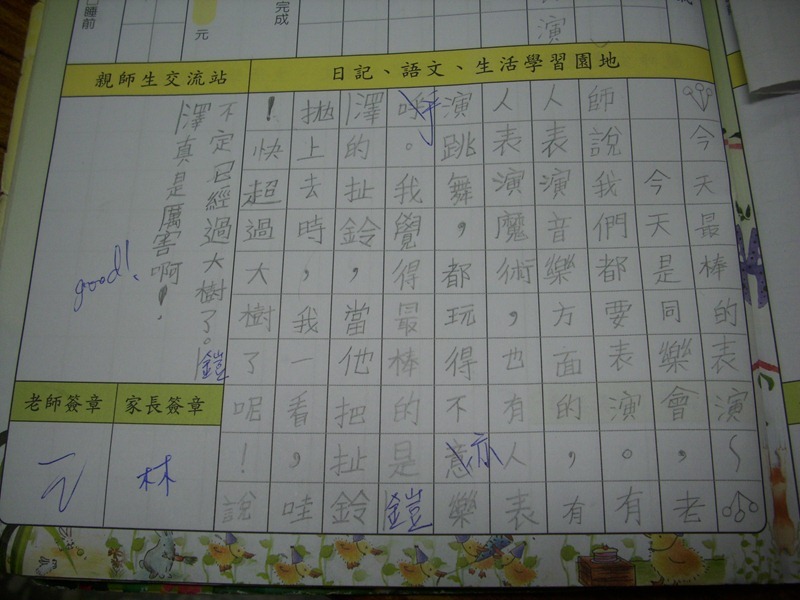 睡前
元
完成
演
日記、語文、生活學習園地
親師生交流站
今天最棒的表演~
今天是同樂會,老
師說我們都要表演。有
人表演音樂方面的,有
人表演魔術,也有人表
演跳舞,都玩得不亦樂
乎。我覺得最棒的是鎧
澤的扯鈴,當他把扯鈴
拋上去時,我一看,哇
!快超過大樹了呢!說
不定已經過大樹了。鎧
澤真是厲害啊!
good!
家長簽章
老師簽章
林